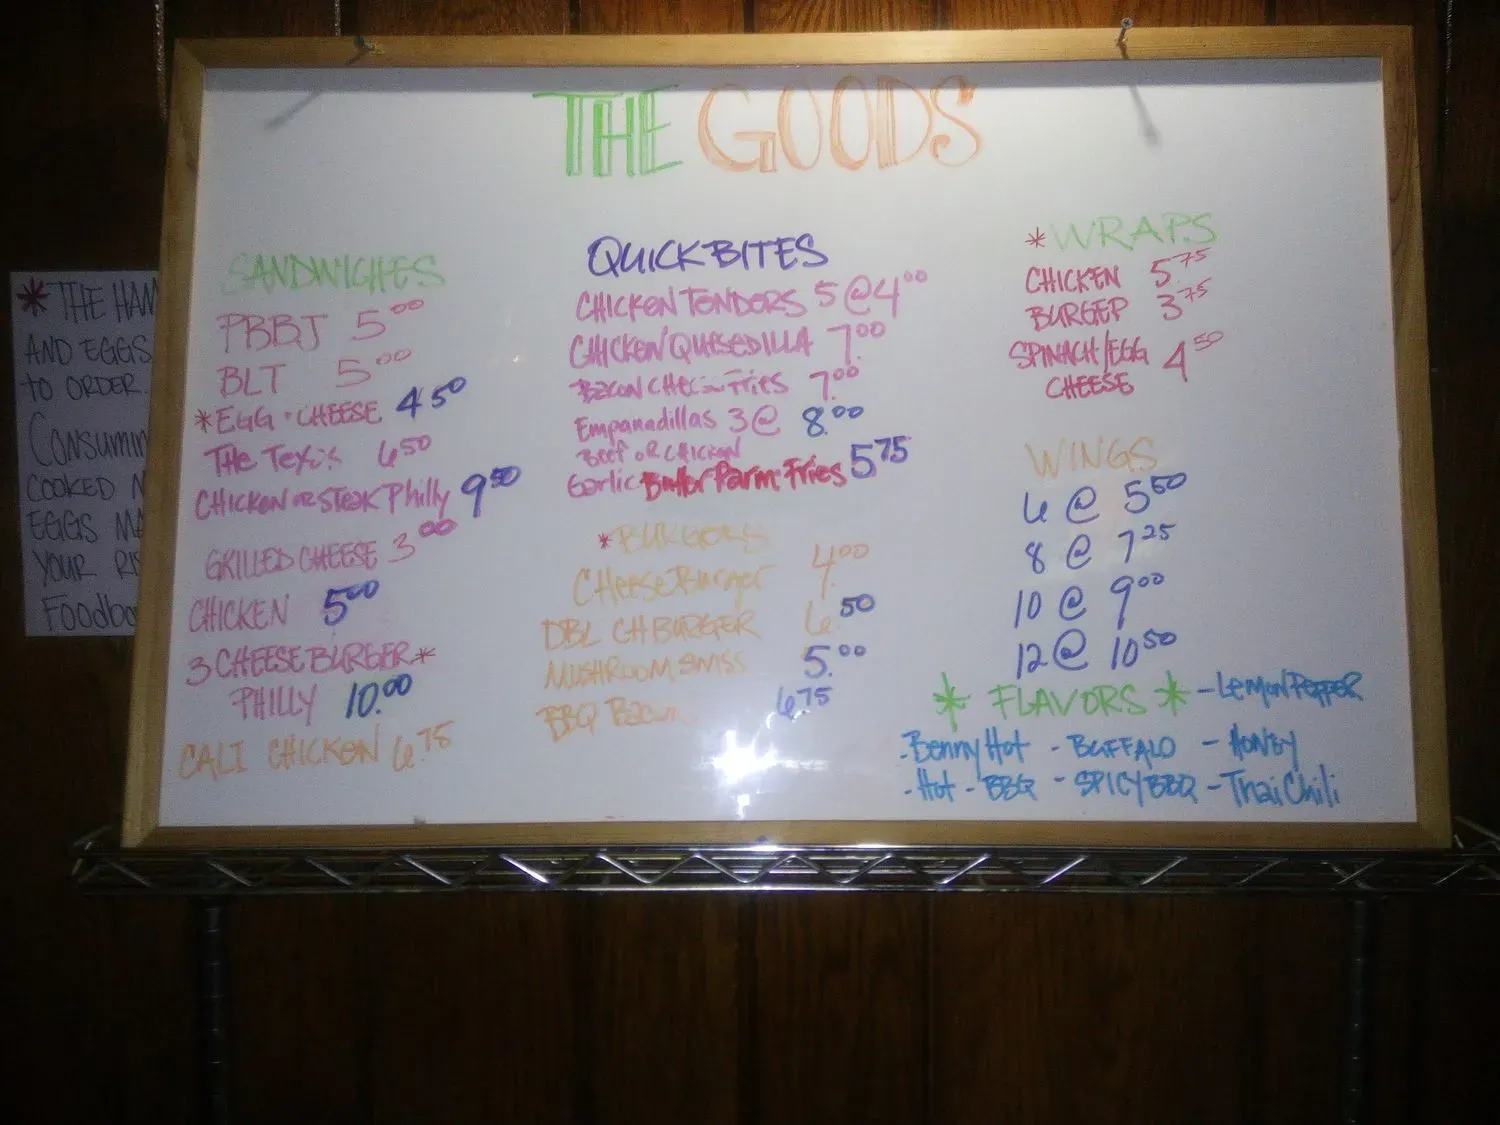 THE GOODS
SANDWICHES
PBBJ 5.00
BLT 5.00
*EGG + CHEESE 4 50
THE Texis 6 50
CHICKEN OR STEAK Philly 9 50
GRILLED CHEESE 3 00
CHICKEN 5 00
3 CHEESE BURGER*
PHILLY 10.00
CALI CHICKEN 6.75
QUICK BITES
CHICKEN TENDERS 5 @ 4 00
CHICKEN QUESEDILLA 7.00
BACON Fries 7.00
Empanadillas 3 @ 8.00
BEEF OR CHICKEN
Garlic Butter Parm Fries 5 75
*BURGERS
CHeese Burger 4.00
DBL CH BURGER 6 50
MUSHROOM SWISS 5.00
BBQ BACON 6 75
*WRAPS
CHICKEN 5.75
BURGER 3 75
SPINACH/EGG 4 50
CHEESE
WINGS
6 @ 5 50
8 @ 7 25
10 @ 9 00
12 @ 10 50
* FLAVORS * - LEMON PEPPER
- Benny Hot - BUFFALO - HONEY
- Hot - BBQ - SPICY BBQ - Thai Chili
* THE HAM
AND EGGS
TO ORDER.
CONSUMIN
COOKED
EGGS MA
YOUR RI
Foodbo